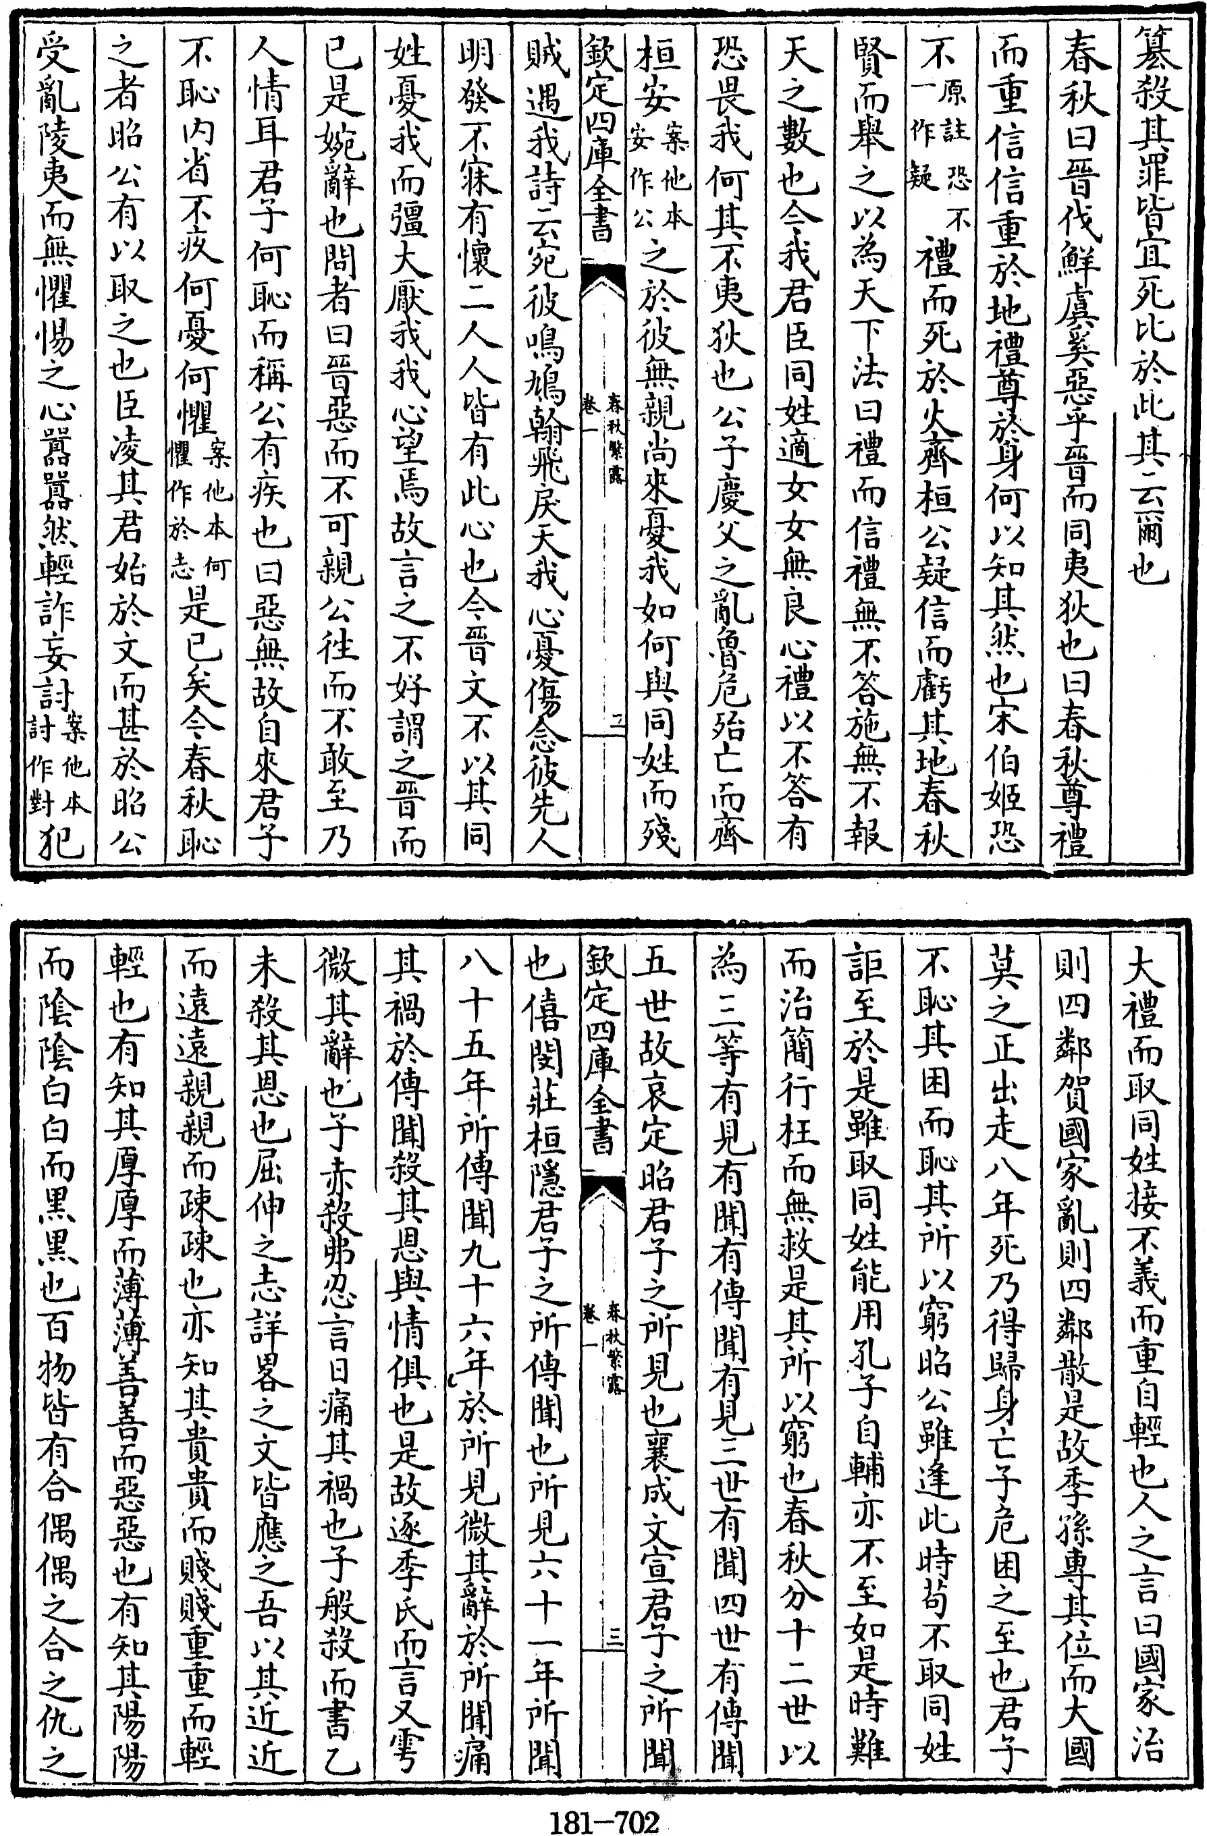 簒殺其罪皆宜死比於此其云爾也
春秋曰晉伐鮮虞奚惡乎晉而同夷狄也曰春秋尊禮
而重信信重於地禮尊於身何以知其然也宋伯姬恐
不原註恐不一作疑禮而死於火齊桓公疑信而虧其地春秋
賢而舉之以為天下法曰禮而信禮無不答施無不報
天之數也今我君臣同姓適女女無良心禮以不答有
恐畏我何其不夷狄也公子慶父之亂魯危殆亡而齊
桓安案他本安作公之於彼無親尚來憂我如何與同姓而殘
欽定四庫全書
春秋繁露
卷一
二
賊遇我詩云宛彼鳴鳩翰飛戾天我心憂傷念彼先人
明發不寐有懷二人人皆有此心也今晉文不以其同
姓憂我而彊大厭我我心望焉故言之不好謂之晉而
已是婉辭也問者曰晉惡而不可親公往而不敢至乃
人情耳君子何恥而稱公有疾也曰惡無故自來君子
不恥內省不疚何憂何懼案他本何懼作於志是已矣今春秋恥
之者昭公有以取之也臣凌其君始於文而甚於昭公
受亂陵夷而無懼惕之心囂囂然輕詐妄討案他本討作對犯
大禮而取同姓接不義而重自輕也人之言曰國家治
則四鄰賀國家亂則四鄰散是故季孫專其位而大國
莫之正出走八年死乃得歸身亡子危困之至也君子
不恥其困而恥其所以窮昭公雖逢此時苟不取同姓
詎至於是雖取同姓能用孔子自輔亦不至如是時難
而治簡行枉而無救是其所以窮也春秋分十二世以
為三等有見有聞有傳聞有見三世有聞四世有傳聞
五世故哀定昭君子之所見也襄成文宣君子之所聞
欽定四庫全書
春秋繁露
卷一
三
也僖閔莊桓隱君子之所傳聞也所見六十一年所聞
八十五年所傳聞九十六年於所見微其辭於所聞痛
其禍於傳聞殺其恩與情俱也是故逐季氏而言又雩
微其辭也子赤殺弗忍言日痛其禍也子般殺而書乙
未殺其恩也屈伸之志詳畧之文皆應之吾以其近近
而遠遠親親而疎疎也亦知其貴貴而賤賤重重而輕
輕也有知其厚厚而薄薄善善而惡惡也有知其陽陽
而陰陰白白而黑黑也百物皆有合偶偶之合之仇之
181-702